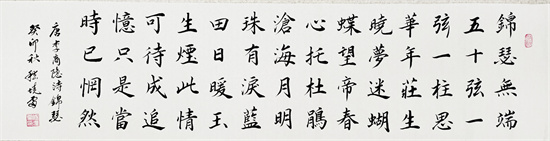 錦瑟無端
五十弦一
弦一柱思
華年莊生
曉夢迷蝴
蝶望帝春
心托杜鵑
滄海月明
珠有淚藍
田日暖玉
生煙此情
可待成追
憶只是當
時已惘然
唐李商隱詩錦瑟
癸卯秋